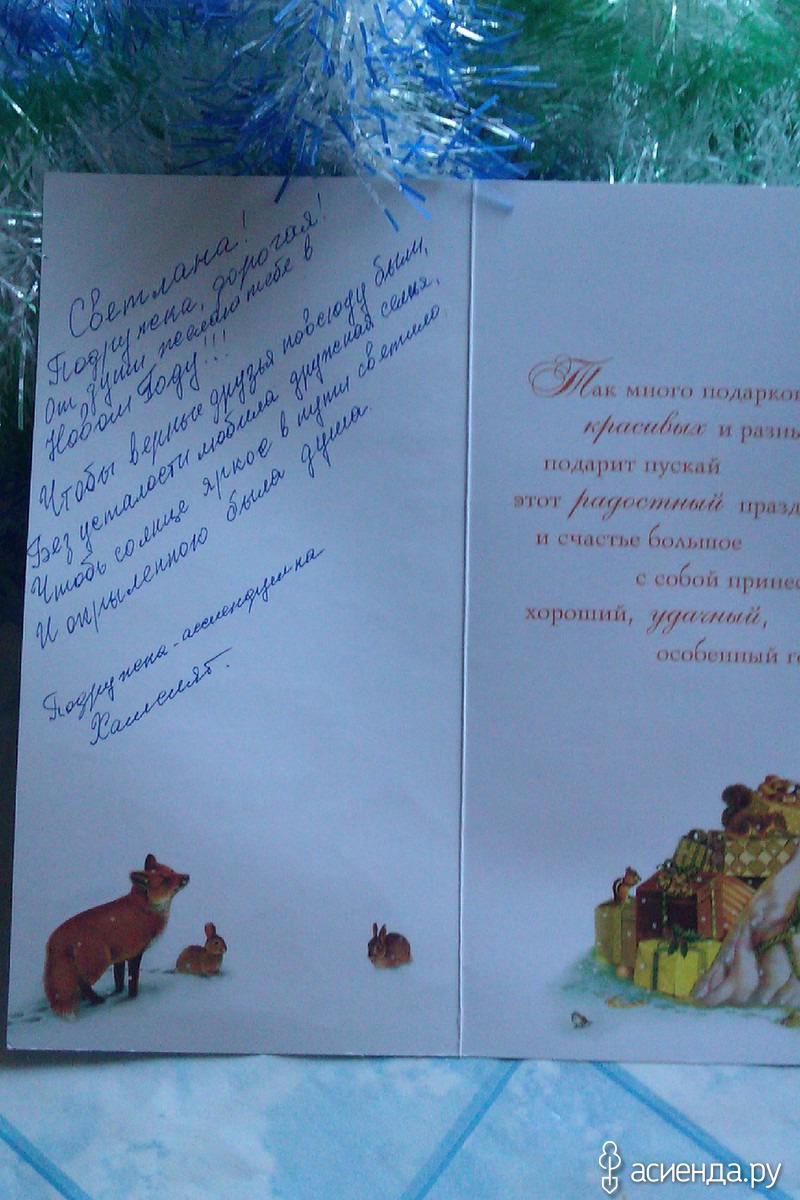 Светлана!
Подружена, дорогая!
От души желаю тебе в
Новом Году!!!
Чтобы верные друзья повсюду были,
Без усталости любила дружная семья,
Чтоб солнце яркое в пути светило.
И окрыленною была душа.
Подружена-асиендушка
Так много подарков
красивых и разны
подарит пускай
этот радостный празд
и счастье большое
с собой принес
хороший, удачный,
особенный го
асиенда.ру